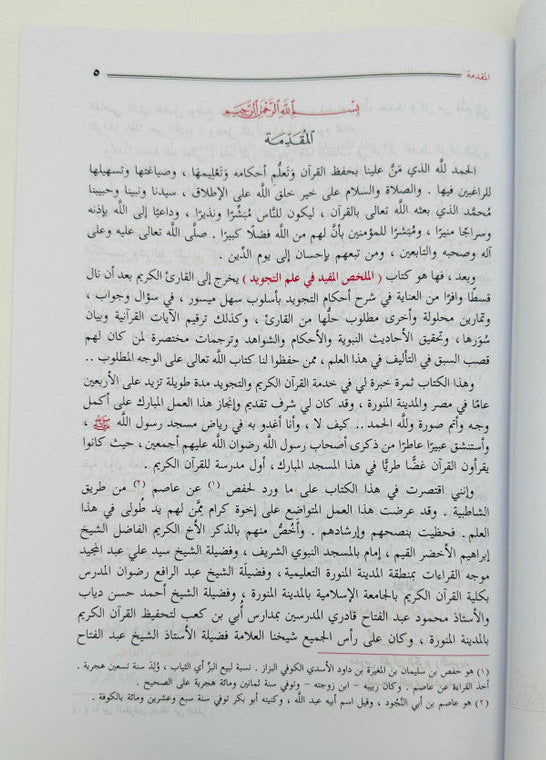 المقدمة
٥
بِسْمِ اللَّهِ الرَّحْمَنِ الرَّحِيمِ
المُقَدِّمَة
الحمد لله الذي مَنَّ علينا بحفظ القرآن وَتَعلُّم أحكامه وَتَعْلِيمها ، وصياغتها وتسهيلها
للراغبين فيها . والصلاة والسلام على خير خلق اللَّه على الإطلاق ، سيدنا ونبينا وحبيبنا
مُحمَّد الذي بعثه اللَّه تعالى بالقرآن ، ليكون للنَّاس مُبَشِّرًا ونذيرًا ، وداعيًا إلى اللَّه بإذنه
وسراجًا منيرًا ، ومُبَشرًا للمؤمنين بأنَّ لهم من اللَّه فضلًا كبيرًا . صلَّى اللَّه تعالى عليه وعلى
آله وصحبه والتابعين ، ومن تبعهم بإحسان إلى يوم الدِّين .
وبعد ، فها هو كتاب ( الملخص المفيد في علم التجويد ) يخرج إلى القارئ الكريم بعد أن نال
قسطًا وافرًا من العناية في شرح أحكام التجويد بأسلوب سهل ميسور ، في سؤال وجواب ،
وتمارين محلولة وأخرى مطلوب حلُّها من القارئ ، وكذلك ترقيم الآيات القرآنية وبيان
سُوَرها ، وتحقيق الأحاديث النبوية والأحكام والشواهد وترجمات مختصرة لمن كان لهم
قصب السبق في التأليف في هذا العلم ، ممن حفظوا لنا كتاب اللَّه تعالى على الوجه المطلوب ..
وهذا الكتاب ثمرة خبرة لي في خدمة القرآن الكريم والتجويد مدة طويلة تزيد على الأربعين
عامًا في مصر والمدينة المنورة ، وقد كان لي شرف تقديم وإنجاز هذا العمل المبارك على أكمل
وجه وأتم صورة وللَّه الحمد .. كيف لا ، وأنا أغدو به في رياض مسجد رسول اللَّه ﷺ ،
وأستنشق عبيرًا عاطرًا من ذكرى أصحاب رسول اللَّه رضوان اللَّه عليهم أجمعين ، حيث كانوا
يقرأون القرآن غضًّا طريًّا في هذا المسجد المبارك، أول مدرسة للقرآن الكريم .
وإنني اقتصرت في هذا الكتاب على ما ورد لحفص (١) عن عاصم (٢) من طريق
الشاطبية . وقد عرضت هذا العمل المتواضع على إخوة كرام مِمَّن لهم يد طُولى في هذا
العلم . فحظيت بنصحهم وإرشادهم . وأَخُصُّ منهم بالذكر الأخ الكريم الفاضل الشيخ
إبراهيم الأخضر القيم ، إمام بالمسجد النبوي الشريف ، وفضيلة الشيخ سيد علي عبد المجيد
موجه القراءات بمنطقة المدينة المنورة التعليمية ، وفضيلة الشيخ عبد الرافع رضوان المدرس
بكلية القرآن الكريم بالجامعة الإسلامية بالمدينة المنورة ، وفضيلة الشيخ أحمد حسن دياب
والأستاذ محمود عبد الفتاح قادري المدرسين بمدارس أُبي بن كعب لتحفيظ القرآن الكريم
بالمدينة المنورة ، وكان على رأس الجميع شيخنا العلامة فضيلة الأستاذ الشيخ عبد الفتاح
(١) هو حفص بن سليمان بن المغيرة بن داود الأسدي الكوفي البزاز . نسبة لبيع البزِّ أي الثياب ، وُلدَ سنة تسعين هجرية .
أخذ القراءة عن عاصم . وكان ربيبه - ابن زوجته - وتوفي سنة ثمانين ومائة هجرية على الصحيح .
(٢) هو عاصم بن أبي النَّجُود ، وقيل اسم أبيه عبد اللَّه ، وكنيته أبو بكر توفي سنة سبع وعشرين ومائة بالكوفة .